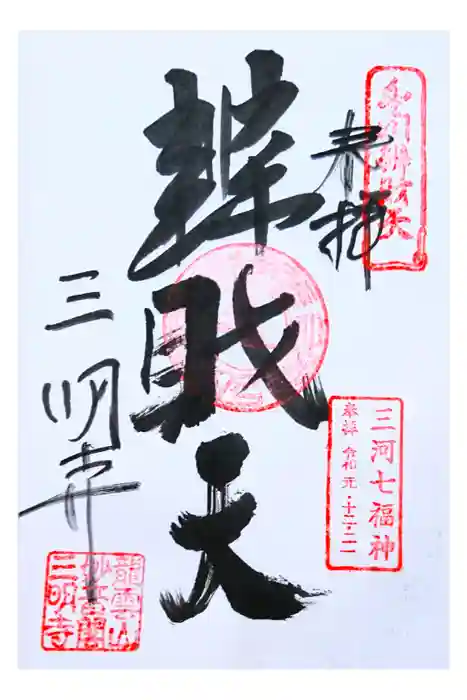 奉拝
三河七福神
奉拝 令和元・十二・二一
辨財天
三明寺
龍雲山
妙音閣
三明寺